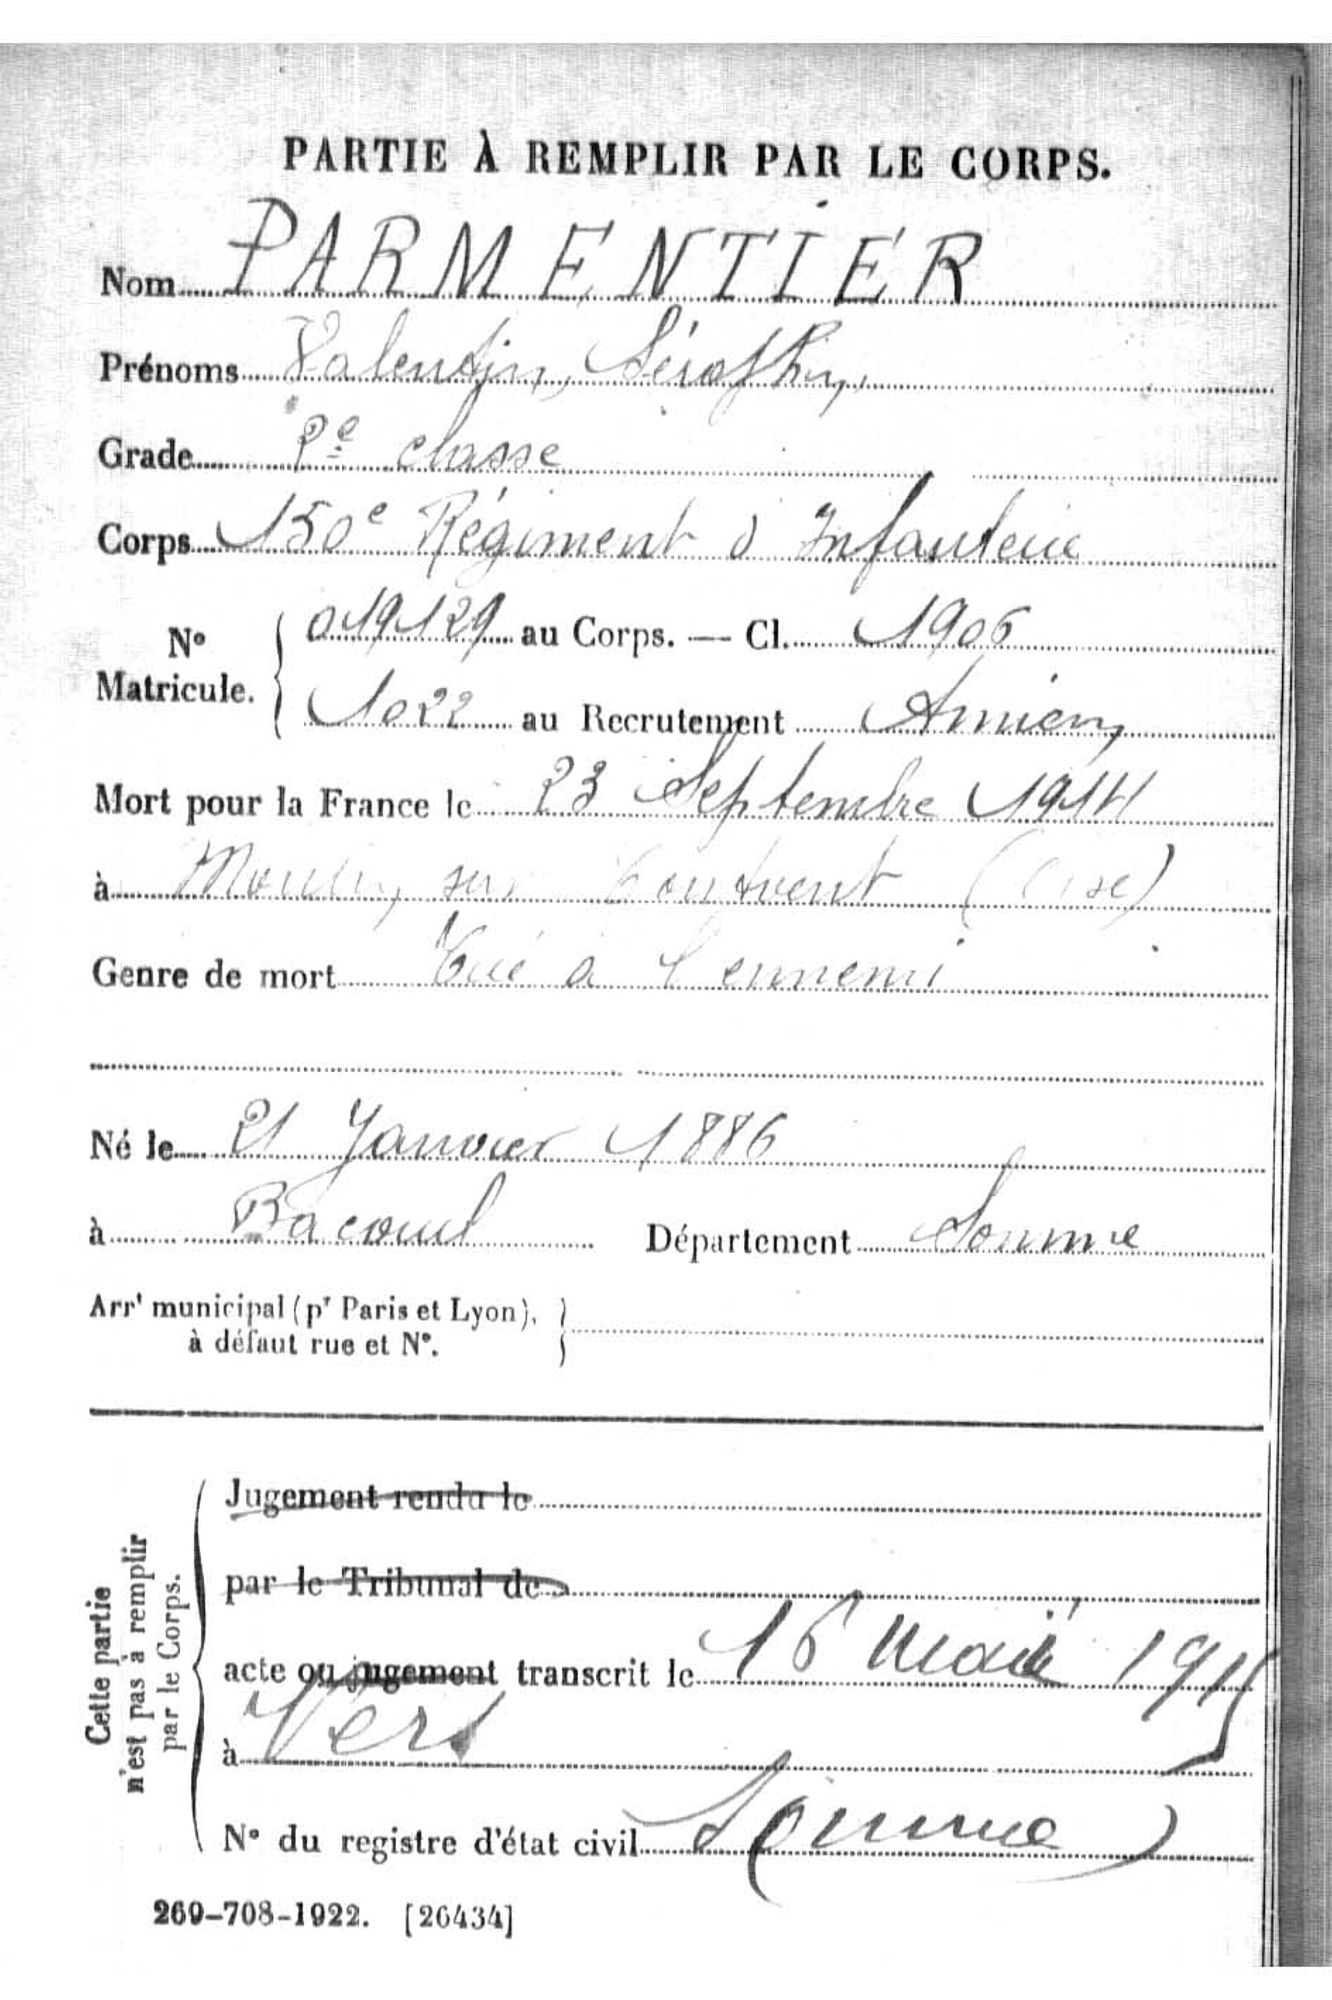 PARTIE À REMPLIR PAR LE CORPS.
Nom PARMENTIER
Prénoms Valentin, Séraphin,
Grade 2e classe
Corps 150e Régiment d'Infanterie
N° Matricule. 019129 au Corps. — Cl. 1906
1022 au Recrutement Amiens
Mort pour la France le 23 Septembre 1914
à Moulin sous Touvent (Oise)
Genre de mort Tué à l'ennemi
Né le 21 Janvier 1886
à Bacouel Département Somme
Arrt municipal (pr Paris et Lyon),
à défaut rue et N°.
Cette partie
n'est pas à remplir
par le Corps.
Jugement rendu le
par le Tribunal de
acte ou jugement transcrit le 16 Mai 1915
à Vers
N° du registre d'état civil (Somme)
269-708-1922. [26434]